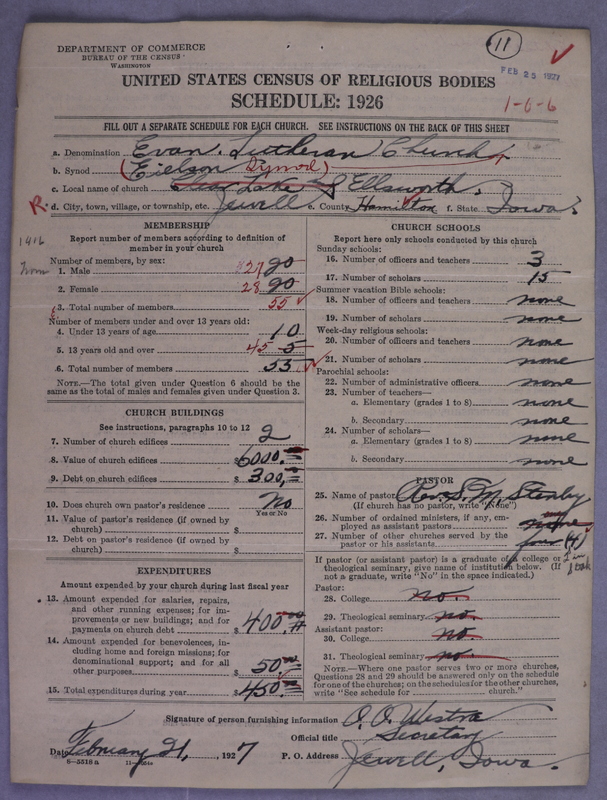 11
FEB 25 1927
DEPARTMENT OF COMMERCE
BUREAU OF THE CENSUS
WASHINGTON
UNITED STATES CENSUS OF RELIGIOUS BODIES
SCHEDULE: 1926
1-6-6
FILL OUT A SEPARATE SCHEDULE FOR EACH CHURCH. SEE INSTRUCTIONS ON THE BACK OF THIS SHEET
a. Denomination Evan. Lutheran Church
b. Synod (Eielson Synod)
c. Local name of church Lake Ellsworth
R. d. City, town, village, or township, etc. Jewell e. County Hamilton f. State Iowa
MEMBERSHIP
Report number of members according to definition of
member in your church
Number of members, by sex:
1. Male 27 20
2. Female 28 20
3. Total number of members 55
Number of members under and over 13 years old:
4. Under 13 years of age 10
5. 13 years old and over 45 5
6. Total number of members 55
NOTE.—The total given under Question 6 should be
the same as the total of males and females given under Question 3.
CHURCH BUILDINGS
See instructions, paragraphs 10 to 12
7. Number of church edifices 2
8. Value of church edifices $6000.
9. Debt on church edifices $300.
10. Does church own pastor's residence No
Yes or No
11. Value of pastor's residence (if owned by
church) $
12. Debt on pastor's residence (if owned by
church) $
EXPENDITURES
Amount expended by your church during last fiscal year
13. Amount expended for salaries, repairs,
and other running expenses; for im-
provements or new buildings; and for
payments on church debt $ 400
14. Amount expended for benevolences, in-
cluding home and foreign missions; for
denominational support; and for all
other purposes $ 50
15. Total expenditures during year $450.
CHURCH SCHOOLS
Report here only schools conducted by this church
Sunday schools:
16. Number of officers and teachers 3
17. Number of scholars 15
Summer vacation Bible schools:
18. Number of officers and teachers none
19. Number of scholars none
Week-day religious schools:
20. Number of officers and teachers none
21. Number of scholars none
Parochial schools:
22. Number of administrative officers none
23. Number of teachers—
a. Elementary (grades 1 to 8) none
b. Secondary none
24. Number of scholars—
a. Elementary (grades 1 to 8) none
b. Secondary none
PASTOR
25. Name of pastor Rev. S. M. Stenby
(If church has no pastor, write "None")
26. Number of ordained ministers, if any, em-
ployed as assistant pastors none
27. Number of other churches served by the
pastor or his assistants four (4)
If pastor (or assistant pastor) is a graduate of a college or
theological seminary, give name of institution below. (If
not a graduate, write "No" in the space indicated.)
Pastor:
28. College no
29. Theological seminary no
Assistant pastor:
30. College no
31. Theological seminary no
NOTE.—Where one pastor serves two or more churches,
Questions 28 and 29 should be answered only on the schedule
for one of the churches; on the schedules for the other churches,
write "See schedule for church."
Signature of person furnishing information O. O. Westra
Official title Secretary
Date February 21, 1927 P. O. Address Jewell, Iowa.
6—5518 a